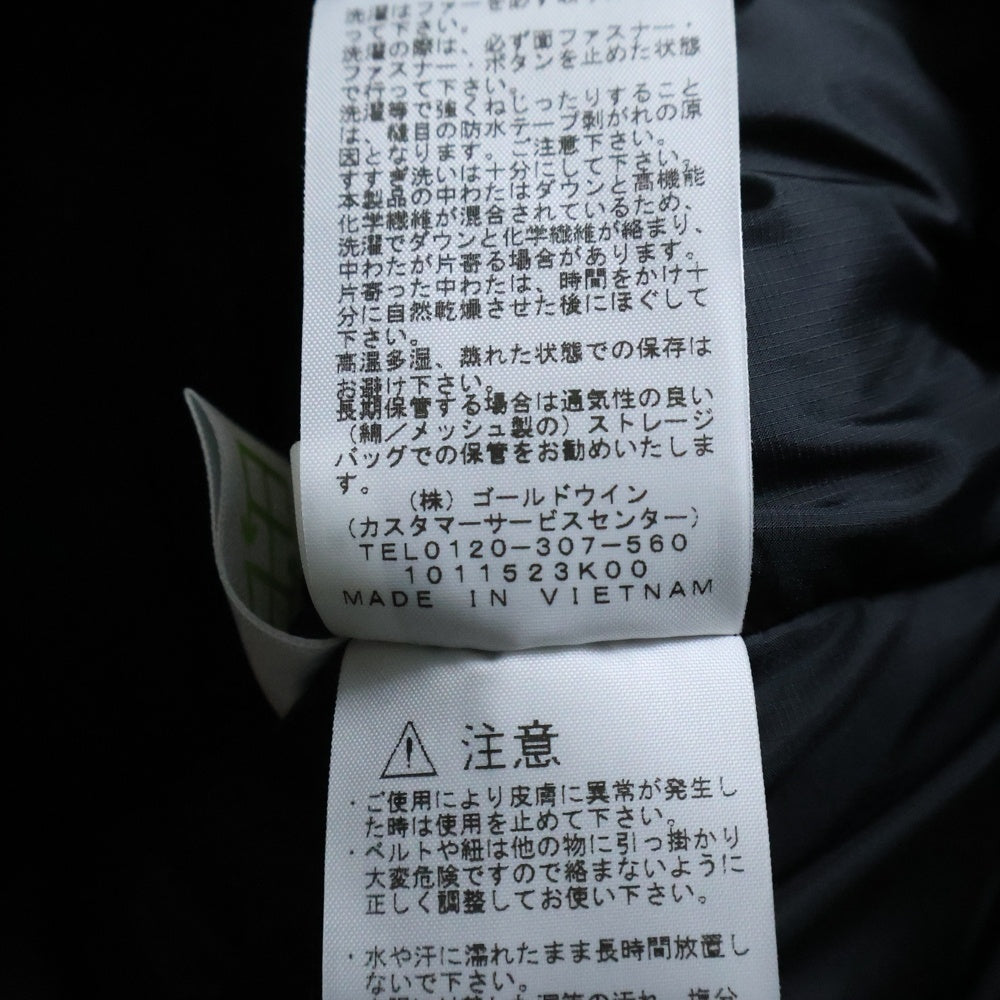 洗濯はファーを必ず取り
って下さい。
洗濯の際は、必ず面ファスナー・
ファスナー・ボタンを止めた状態
で行って下さい。
洗濯等で強くねじったりすること
は、縫目の防水テープ剥がれの原
因となります。ご注意下さい。
すすぎ洗いは十分にして下さい。
本製品の中わたはダウンと高機能
化学繊維が混合されているため、
洗濯でダウンと化学繊維が絡まり、
中わたが片寄る場合があります。
片寄った中わたは、時間をかけ十
分に自然乾燥させた後にほぐして
下さい。
高温多湿、蒸れた状態での保存は
お避け下さい。
長期保管する場合は通気性の良い
(綿／メッシュ製の)ストレージ
バッグでの保管をお勧めいたしま
す。
(株)ゴールドウイン
(カスタマーサービスセンター)
TEL0120-307-560
1011523K00
MADE IN VIETNAM
注意
・ご使用により皮膚に異常が発生し
た時は使用を止めて下さい。
・ベルトや紐は他の物に引っ掛かり
大変危険ですので絡まないように
正しく調整してお使い下さい。
・水や汗に濡れたまま長時間放置し
ないで下さい。